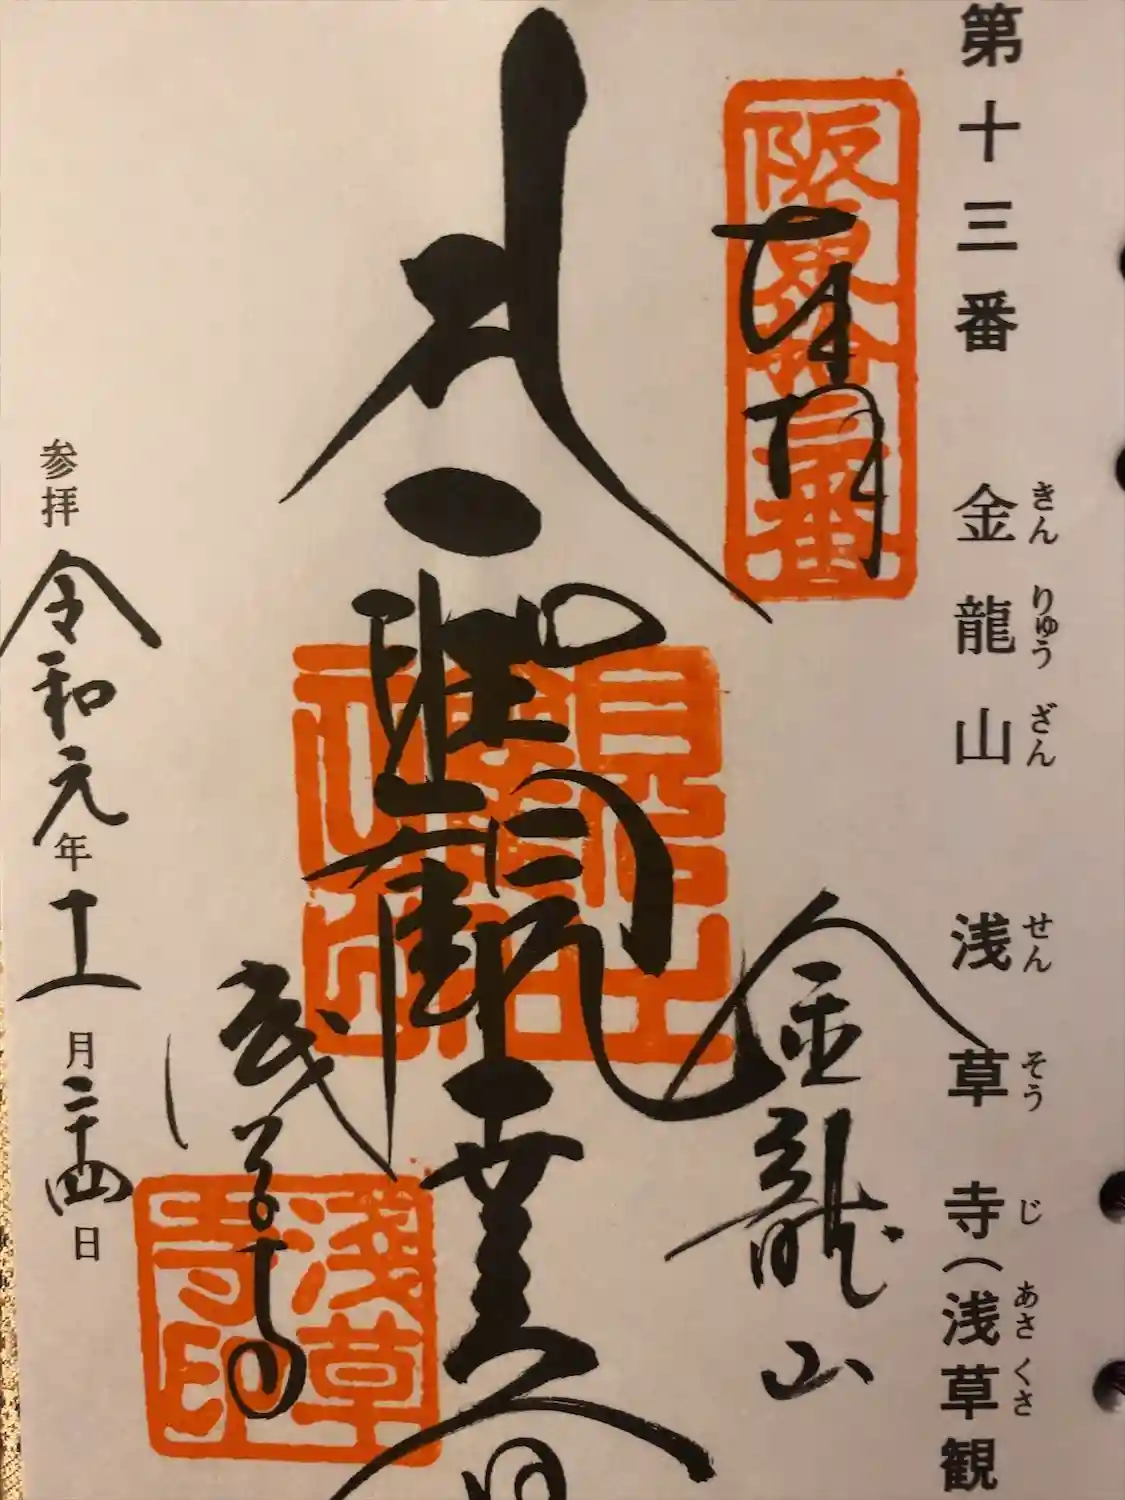 第十三番　金龍山　浅草寺（浅草観
きんりゅうざん　せんそうじ　あさくさ
奉拝
阪東拾三番
金龍山
聖観世音
浅草寺
浅草寺印
参拝　令和元年十一月二十四日